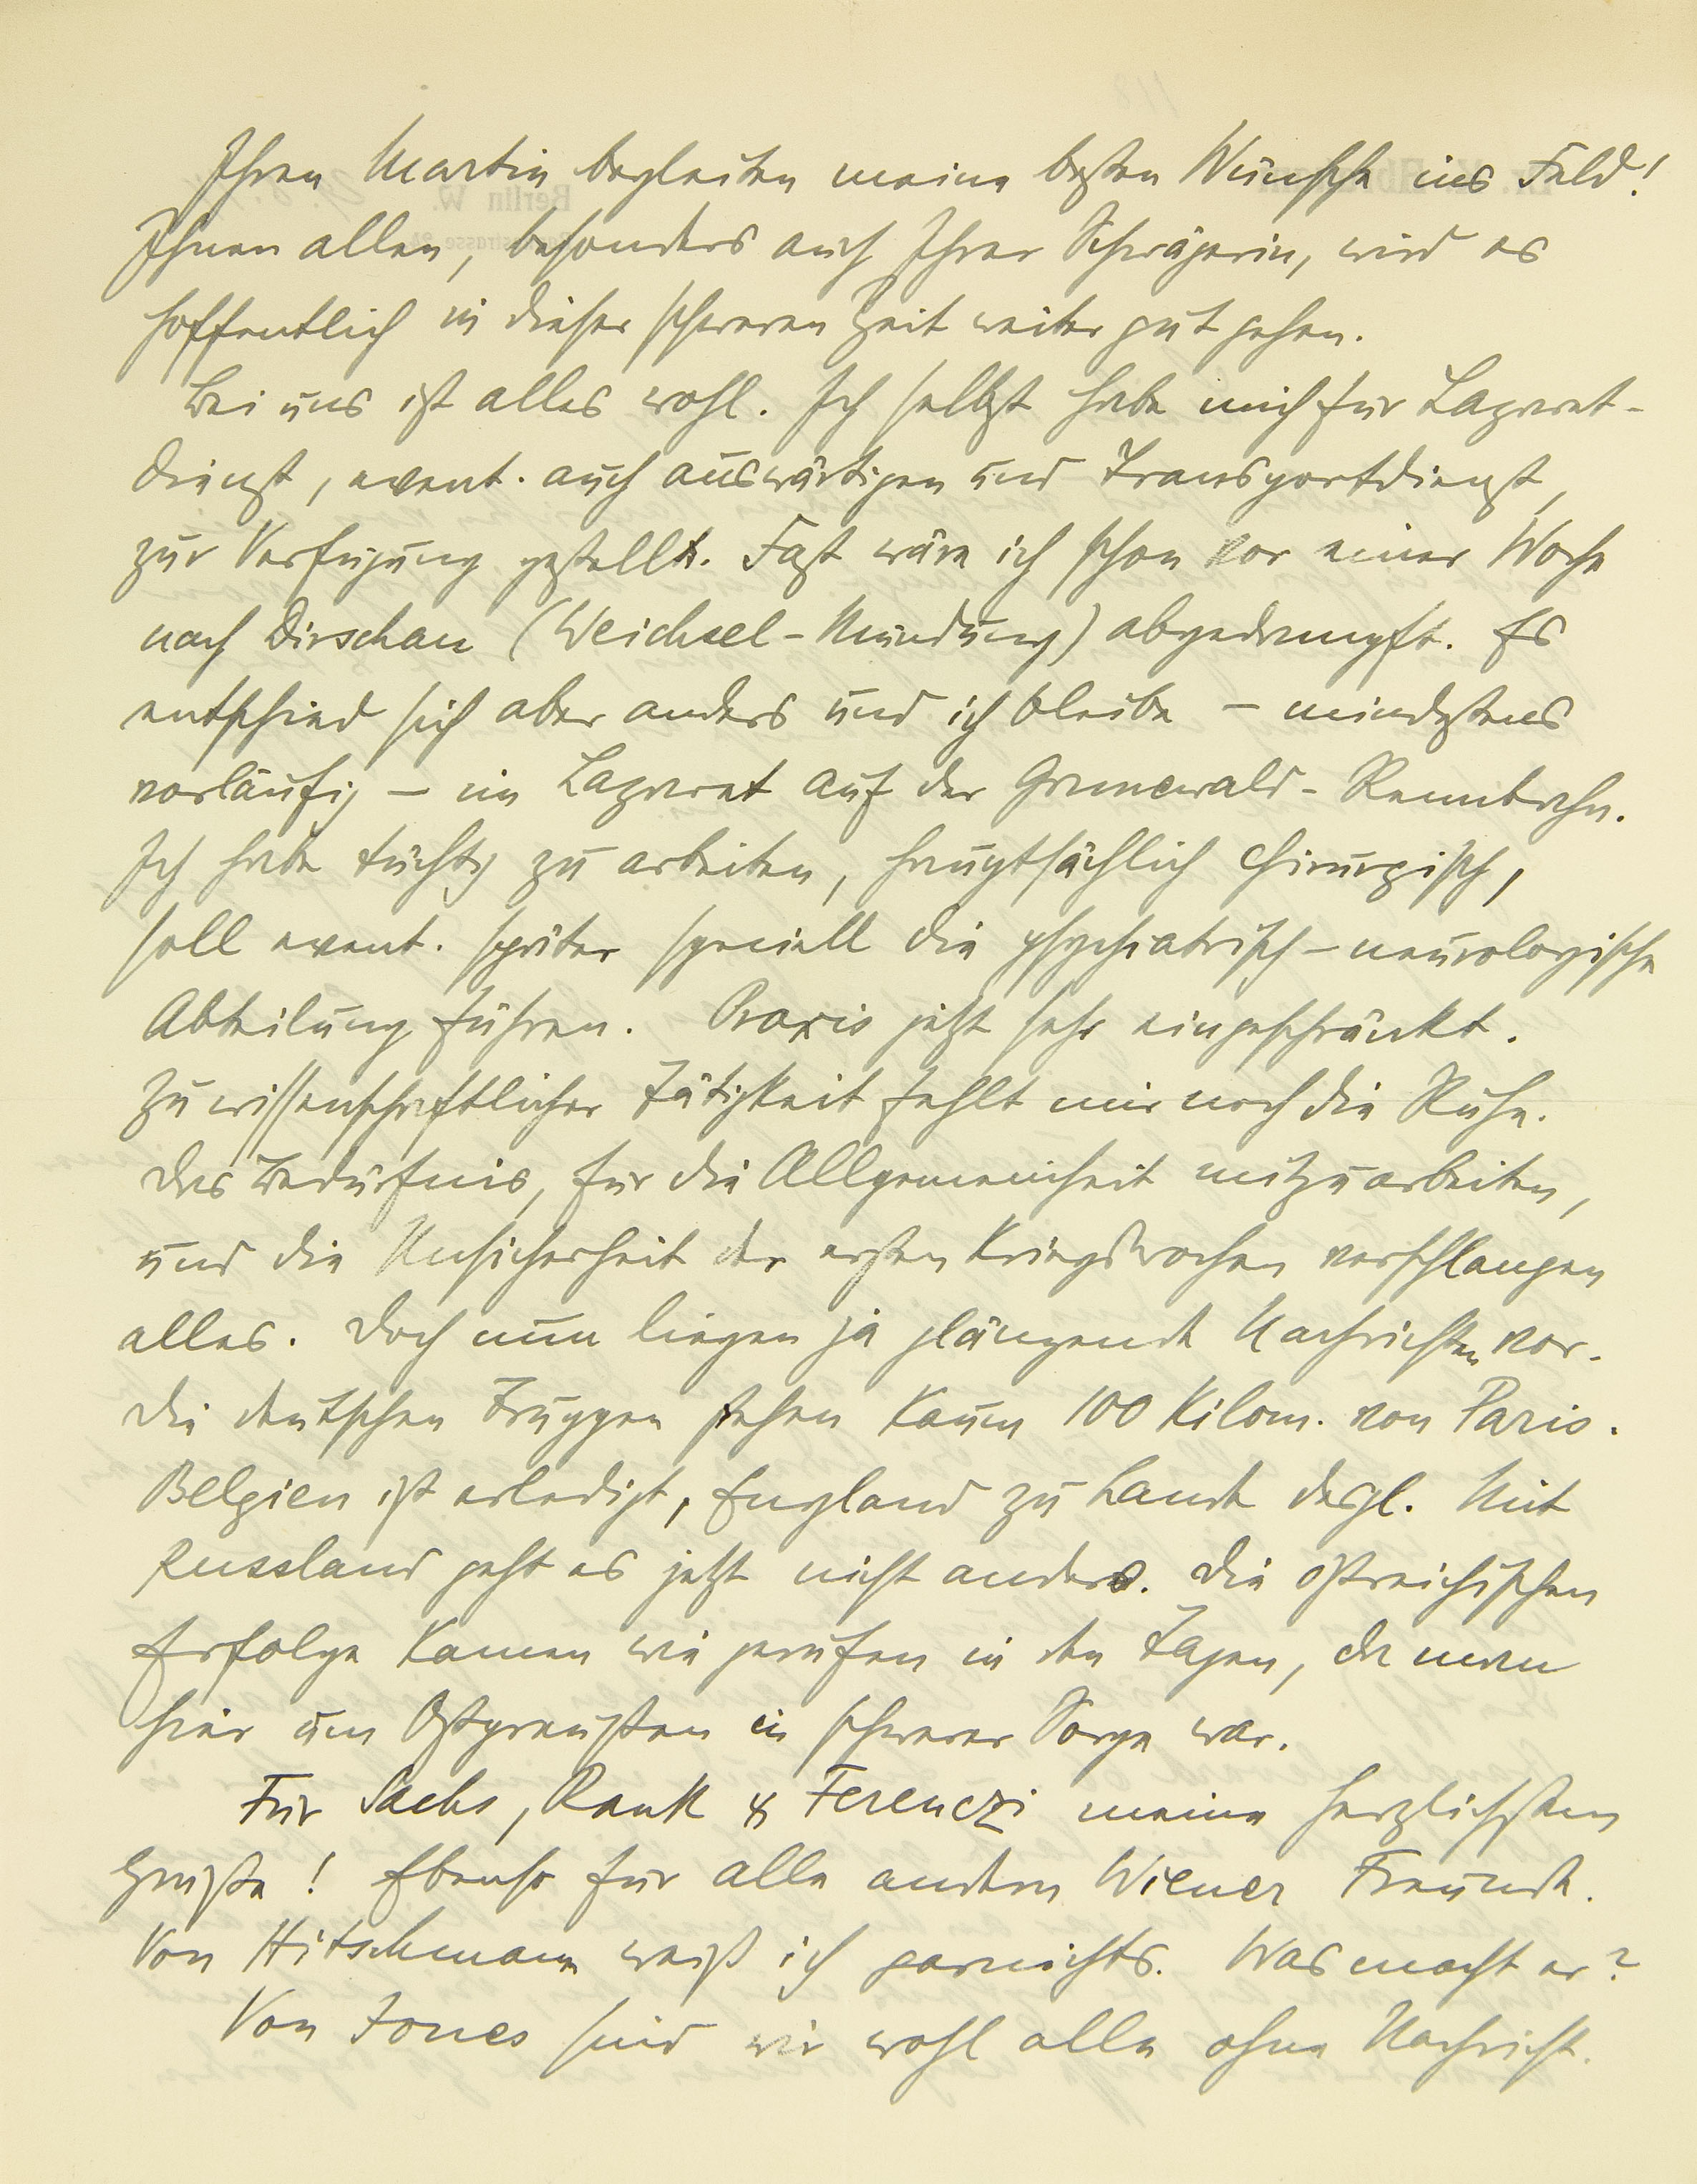 Ihren Martin begleiten meine besten Wünsche ins Feld!
Ihnen allen, besonders auch Ihrer Schwägerin, wird es
hoffentlich in dieser schweren Zeit weiter gut gehen.
Bei uns ist alles wohl. Ich selbst habe mich für Lazaret-
dienst, event. auch auswärtigen und Transportdienst,
zur Verfügung gestellt. Fast wäre ich schon vor einer Woche
nach Dirschau (Weichsel-Mündung) abgedampft. Es
entschied sich aber anders und ich bleibe – mindestens
vorläufig – im Lazaret auf der Grunewald-Rennbahn.
Ich habe tüchtig zu arbeiten, hauptsächlich chirurgisch,
soll event. später speciell die psychiatrisch-neurologische
Abteilung führen. Praxis jetzt sehr eingeschränkt.
Zu wissenschaftlicher Tätigkeit fehlt mir noch die Ruhe.
Das Bedürfnis, für die Allgemeinheit mitzuarbeiten,
und die Unsicherheit der ersten Kriegswochen verschlangen
alles. Doch nun liegen ja glänzende Nachrichten vor.
Die deutschen Truppen stehen kaum 100 Kilom. von Paris.
Belgien ist erledigt, England zu Lande desgl. Mit
Russland geht es jetzt nicht anders. Die östreichischen
Erfolge kamen wie gerufen in den Tagen, da man
hier um Ostpreußen in schwerer Sorge war.
Für Sachs, Rank & Ferenczi meine herzlichsten
Grüße! Ebenso für alle andern Wiener Freunde.
Von Hitschmann weiß ich garnichts. Was macht er?
Von Jones sind wir wohl alle ohne Nachricht.